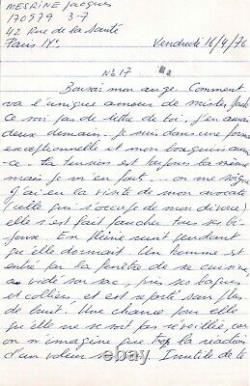 MESRINE Jacques
170979 3-7
42 Rue de la Santé
Paris 14°.
Vendredi 16/4/76
Nb 17
Bonsoir mon ange. Comment
va l'unique amour de mister
ce soir pas de lettre de toi. J'en aurai
deux demain. Je suis dans une forme
exceptionnelle et mon bouquin avan-
-ce. La tension est toujours la même
mais je m'en fout. on me soigne
J'ai eu la visite de mon avocate
(celle qui s'occupe de mon divorce)
elle s'est fait faucher tous ses bi-
joux. En pleine nuit pendant
qu'elle dormait. Un homme est
entré par la fenêtre de sa cuisine
a vidé son sac, pris ses bagues
et colliers et est reparti sans plus
de bruit. Une chance pour elle
qu'elle ne se soit pas réveillée, car
on n'imagine que trop la réaction
d'un voleur Inutile de te